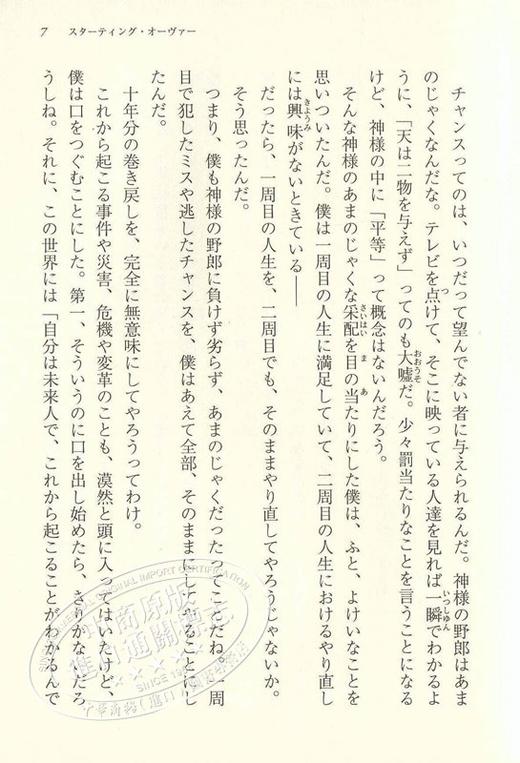 7 スターティング・オーヴァー
チャンスってのは、いつだって望んでない者に与えられるんだ。神様の野郎はあま
のじゃくなんだな。テレビを点けて、そこに映っている人達を見れば一瞬でわかるよ
うに、「天は二物を与えず」ってのも大嘘だ。少々罰当たりなことを言うことになる
けど、神様の中に「平等」って概念はないんだろう。
そんな神様のあまのじゃくな采配を目の当たりにした僕は、ふと、よけいなことを
思いついたんだ。僕は一周目の人生に満足していて、二周目の人生におけるやり直し
には興味がないときている――
だったら、一周目の人生を、二周目でも、そのままやり直してやろうじゃないか。
そう思ったんだ。
つまり、僕も神様の野郎に負けず劣らず、あまのじゃくだったってことだね。一周
目で犯したミスや逃したチャンスを、僕はあえて全部、そのままにしてやることにし
たんだ。
十年分の巻き戻しを、完全に無意味にしてやろうってわけ。
これから起こる事件や災害、危機や変革のことも、漠然と頭に入ってはいたけど、
僕は口をつぐむことにした。第一、そういうのに口を出し始めたら、きりがないだろ
うしね。それに、この世界には「自分は未来人で、これから起こることがわかるんで